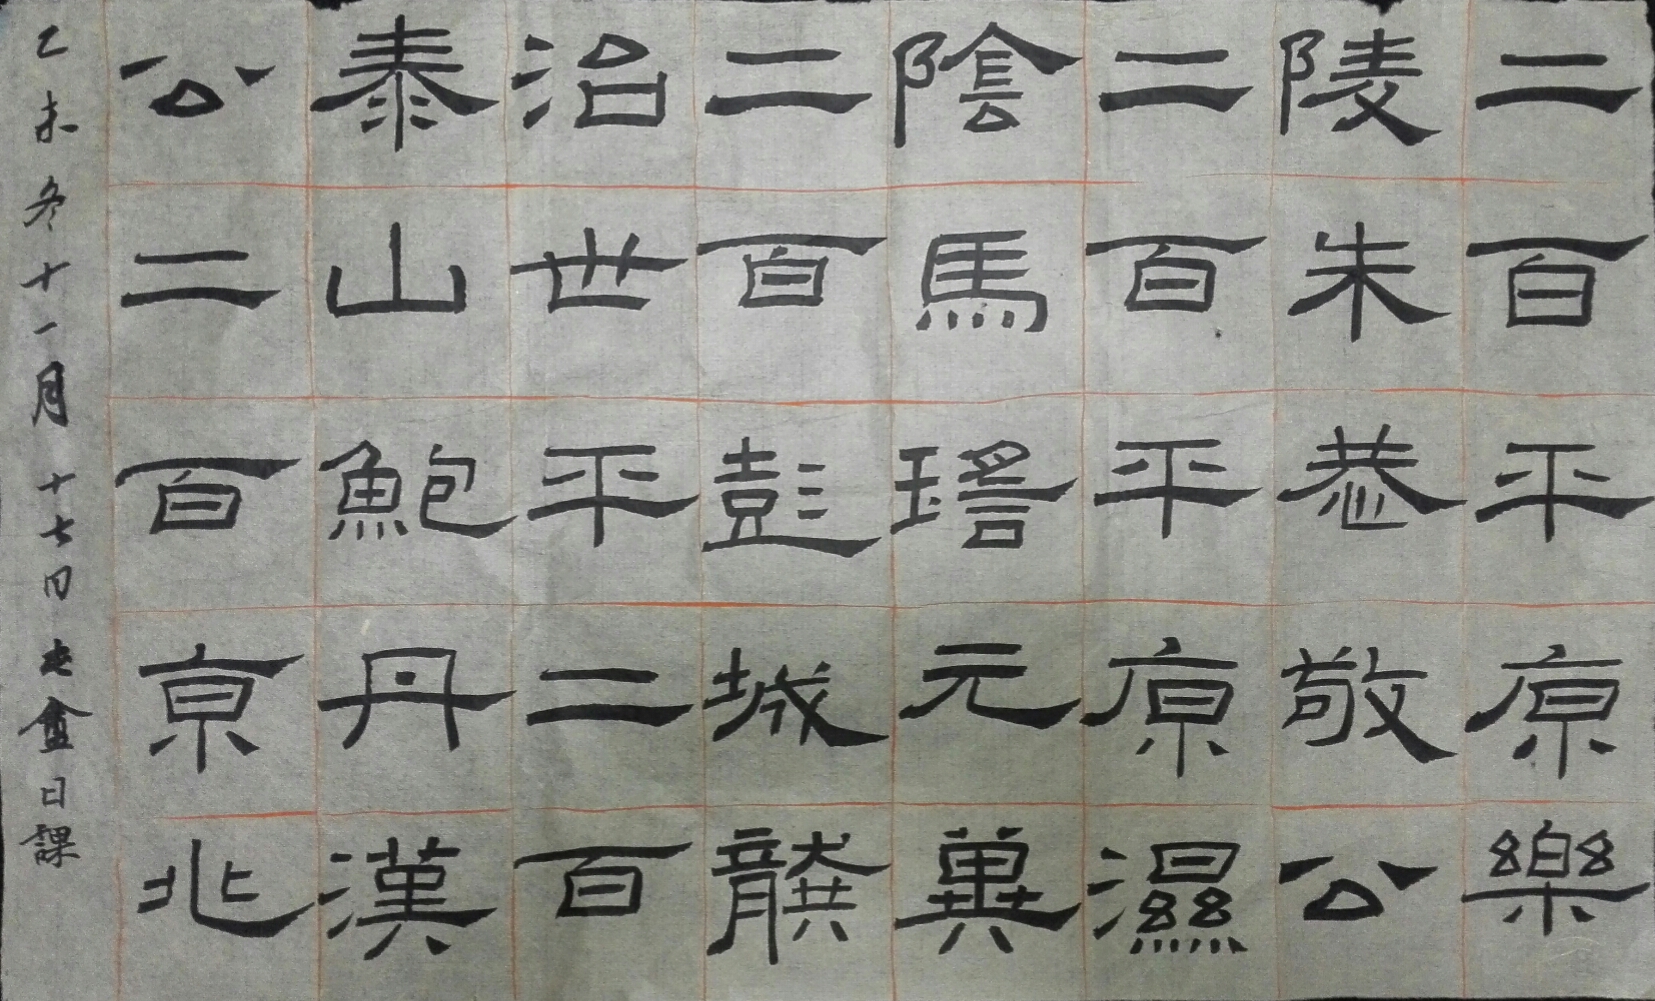 二百平原樂
陵朱恭敬公
二百平原濕
陰馬瑤元冀
二百彭城龔
治世平二百
泰山鮑丹漢
公二百亰兆
乙未冬十一月十七日盦日課